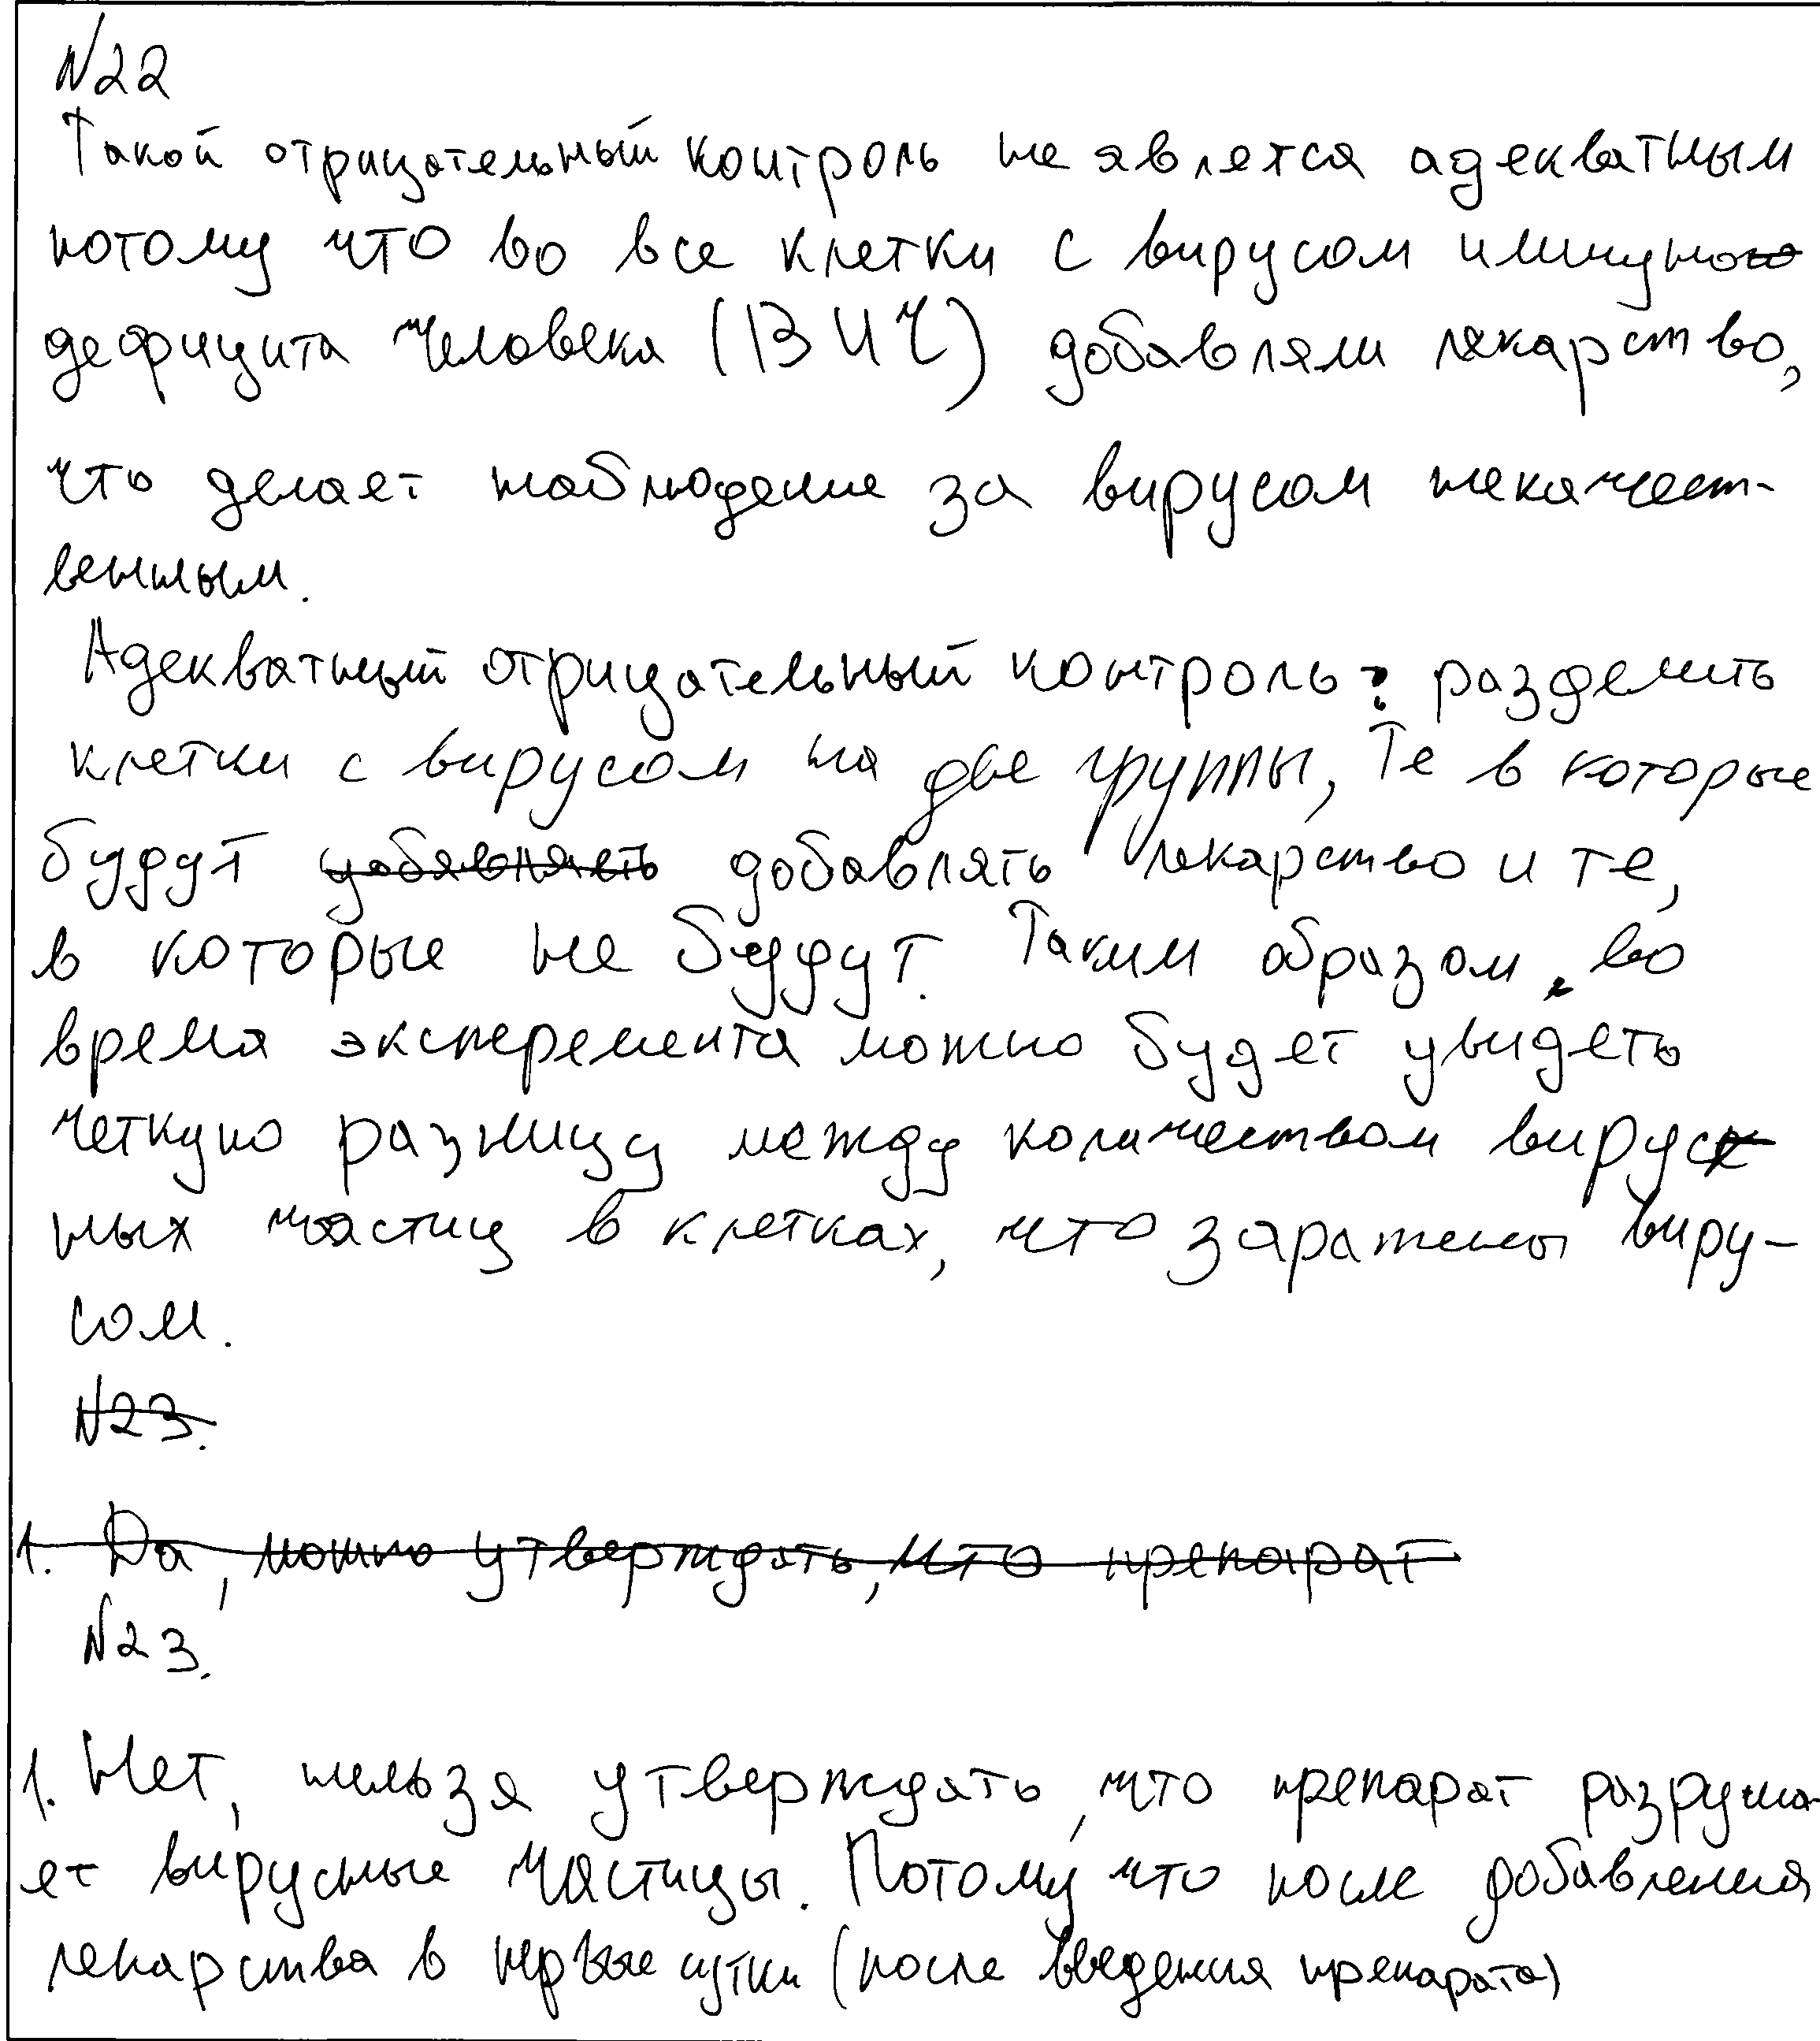 №22
Такой отрицательный контроль не явлется адекватным
потому что во все клетки с вирусом иммуно
дефицита человека (ВИЧ) добавляли лекарство,
что делает наблюдение за вирусом некачест-
венным.
Адекватный отрицательный контроль: разделить
клетки с вирусом на две группы, Те в которые
будут добавлять лекарство и те,
в которые не будут. Таким образом, во
время эксперемента можно будет увидеть
четкую разницу между количеством вирус
ных частиц в клетках, что заражены виру-
сом.
№23.
1. Да, можно утверждать, что препарат
№23.
1. Нет, нельзя утверждать, что препарат разруша-
ет вирусные частицы. Потому что после добавления
лекарства в первые сутки (после введения препарата)